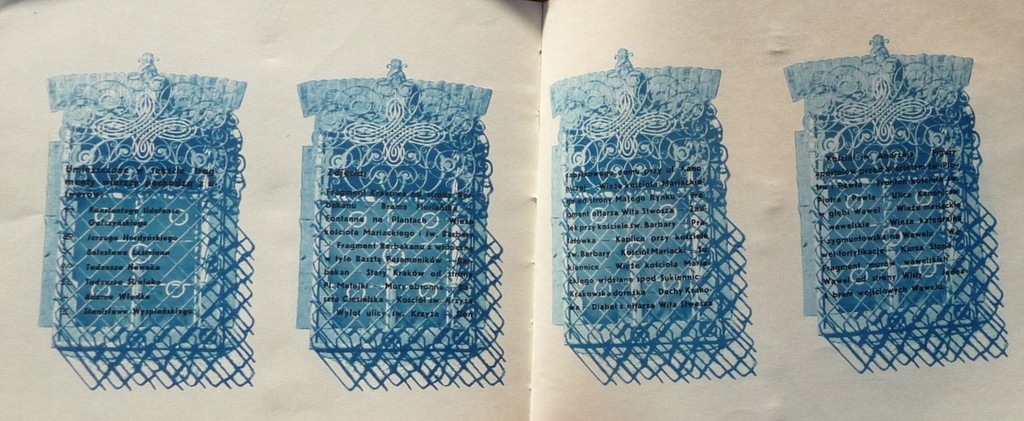 Umieszczone w tekście frag-
menty wierszy pochodzą z u-
tworów:
Konstantego Ildefonsa
Gałczyńskiego
Jerzego Harasymowicza
Bolesława Leśmiana
Tadeusza Nowaka
Tadeusza Śliwiaka
Adama Włodka
Stanisława Wyspiańskiego
Zdjęcia:
Fragment Krakowa od strony Bar-
bakanu — Brama Floriańska —
Fontanna na Plantach — Wieża
kościoła Mariackiego i św. Barbara
— Fragment Barbakanu z widoczną
w tyle Basztą Pasamoników — Bar-
bakan — Stary Kraków od strony
Pl. Matejki — Mury obronne — Ba-
szta Ciesielska — Kościół św. Krzyża
— Wylot ulicy św. Krzyża —
domu przy ul. Kano-
— Wieże kościoła Mariackie-
go od strony Małego Rynku —
gment ołtarza Wita Stwosza —
łek przy kościele św. Barbary —
— Kaplica przy kościele
św. Barbary — Kościół Mariacki — Su-
kiennice — Wieże kościoła Maria-
ckiego widziane spod Sukiennic —
Krakowska dorożka — Dachy Krako-
wa — Diabeł z ołtarza Wita Stwosza
— Kościół św. Andrzeja — Figury
apostołów przed kościołem św. Pio-
tra i Pawła — Fronton kościoła św.
Piotra i Pawła — Ulica Kanonicza
w głębi Wawel — Wieże mariackie
wawelskie — Wieża katedralna
zygmuntowska na Wawelu — Wa-
wel-fortyfikacje — Kurza Stopa —
Fragment murów wawelskich —
Wawel od strony Wisły — Jedna
z bram wejściowych Wawelu.